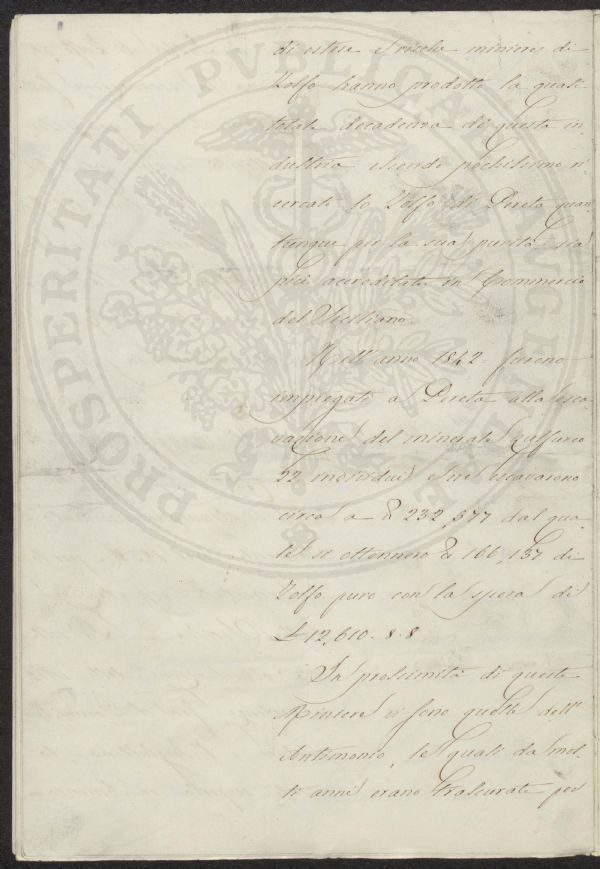 di estese e ricche miniere di
Zolfo hanno prodotto la quasi
totale decadenza di questa in-
dustria essendo pochissimo ri-
cercato lo Zolfo di Pereta quan-
tunque per la sua purità sia
più accreditato in Commercio
del Siciliano.
Nell'anno 1842 furono
impiegati a Pereta alla esca-
vazione del minerale sulfureo
22 individui e ne escavarono
circa a 232,577 dal qua-
le si ottennero 166,157 di
Zolfo puro con la spesa di
£ 12,610. 8. 8
In prossimità di queste
Miniere vi sono quelle dell'
Antimonio, le quali da mol-
ti anni erano trascurate per
PROSPERITATI PUBLICAE AUGENDAE